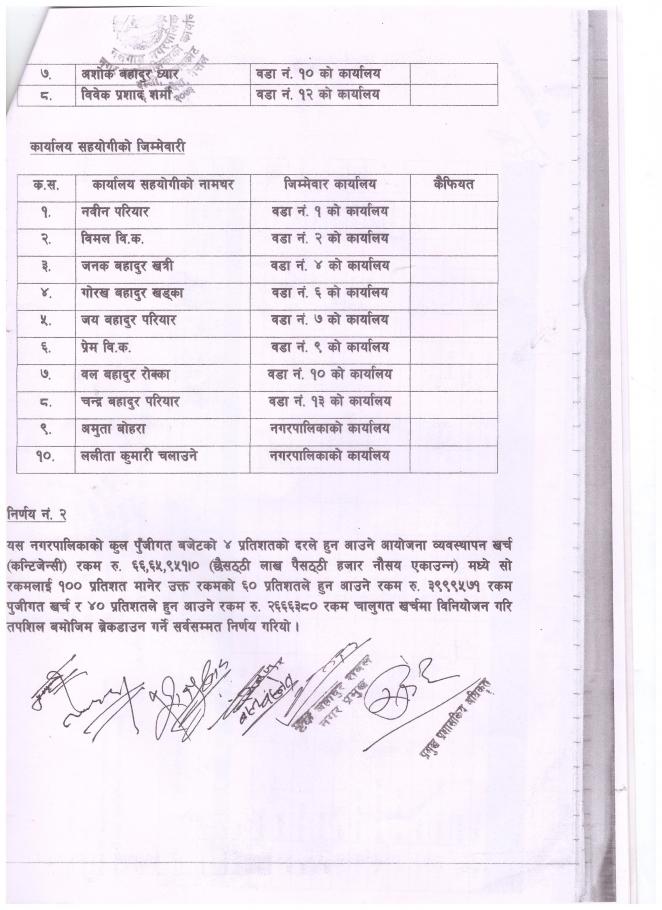 ७. अशोक बहादुर ध्यार वडा नं. १० को कार्यालय
८. विवेक प्रशाद शर्मा वडा नं. १२ को कार्यालय
कार्यालय सहयोगीको जिम्मेवारी
क.स. कार्यालय सहयोगीको नामथर जिम्मेवार कार्यालय कैफियत
१. नवीन परियार वडा नं. १ को कार्यालय
२. विमल वि.क. वडा नं. २ को कार्यालय
३. जनक बहादुर खत्री वडा नं. ४ को कार्यालय
४. गोरख बहादुर खड्का वडा नं. ६ को कार्यालय
५. जय बहादुर परियार वडा नं. ७ को कार्यालय
६. प्रेम वि.क. वडा नं. ९ को कार्यालय
७. वल बहादुर रोक्का वडा नं. १० को कार्यालय
८. चन्द्र बहादुर परियार वडा नं. १३ को कार्यालय
९. अमुता बोहरा नगरपालिकाको कार्यालय
१०. ललीता कुमारी चलाउने नगरपालिकाको कार्यालय
निर्णय नं. २
यस नगरपालिकाको कुल पुँजीगत बजेटको ४ प्रतिशतको दरले हुन आउने आयोजना व्यवस्थापन खर्च
(कन्टिजेन्सी) रकम रु. ६६,६५,९५१।० (छैसठ्ठी लाख पैसठ्ठी हजार नौसय एकाउन्न) मध्ये सो
रकमलाई १०० प्रतिशत मानेर उक्त रकमको ६० प्रतिशतले हुन आउने रकम रु. ३९९९५७१ रकम
पुजीगत खर्च र ४० प्रतिशतले हुन आउने रकम रु. २६६६३८० रकम चालुगत खर्चमा विनियोजन गरि
तपशिल बमोजिम ब्रेकडाउन गर्ने सर्वसम्मत निर्णय गरियो ।
बहादुर रावल
नगर प्रमुख
प्रमुख प्रशासकिय अधिकृत